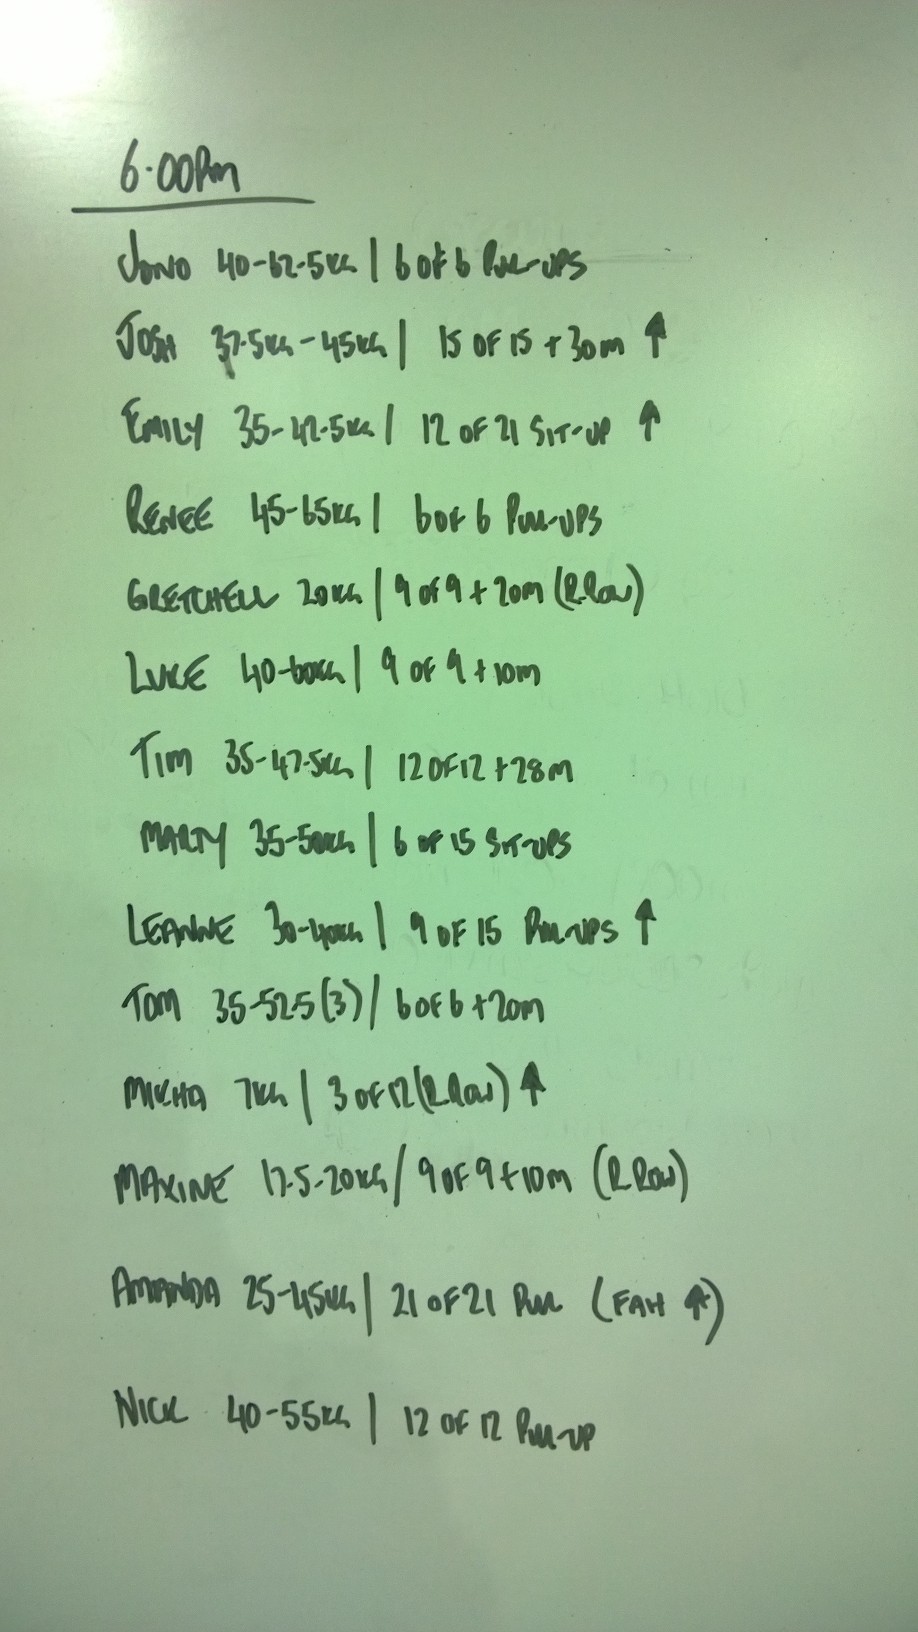 6.00pm
JONO 40-62.5KG | 6 OF 6 PULL-UPS
JOSH 37.5KG-45KG | 15 OF 15 + 30m ↑
EMILY 35-42.5KG | 12 OF 21 SIT-UP ↑
RENEE 45-65KG | 6 OF 6 PULL-UPS
GRETCHELL 20KG | 9 OF 9 + 20m (R.ROW)
LUKE 40-60KG | 9 OF 9 + 10m
TIM 35-47.5KG | 12 OF 12 + 28m
MARTY 35-50KG | 6 OF 15 SIT-UPS
LEANNE 30-40KG | 9 OF 15 PULL-UPS ↑
TOM 35-52.5(3) / 6 OF 6 + 20m
MIKHA 7KG | 3 OF 12 (R.ROW) ↑
MAXINE 17.5-20KG / 9 OF 9 + 10m (R.ROW)
AMANDA 25-45KG | 21 OF 21 PULL (FAH ↑)
NICK 40-55KG | 12 OF 12 PULL-UP